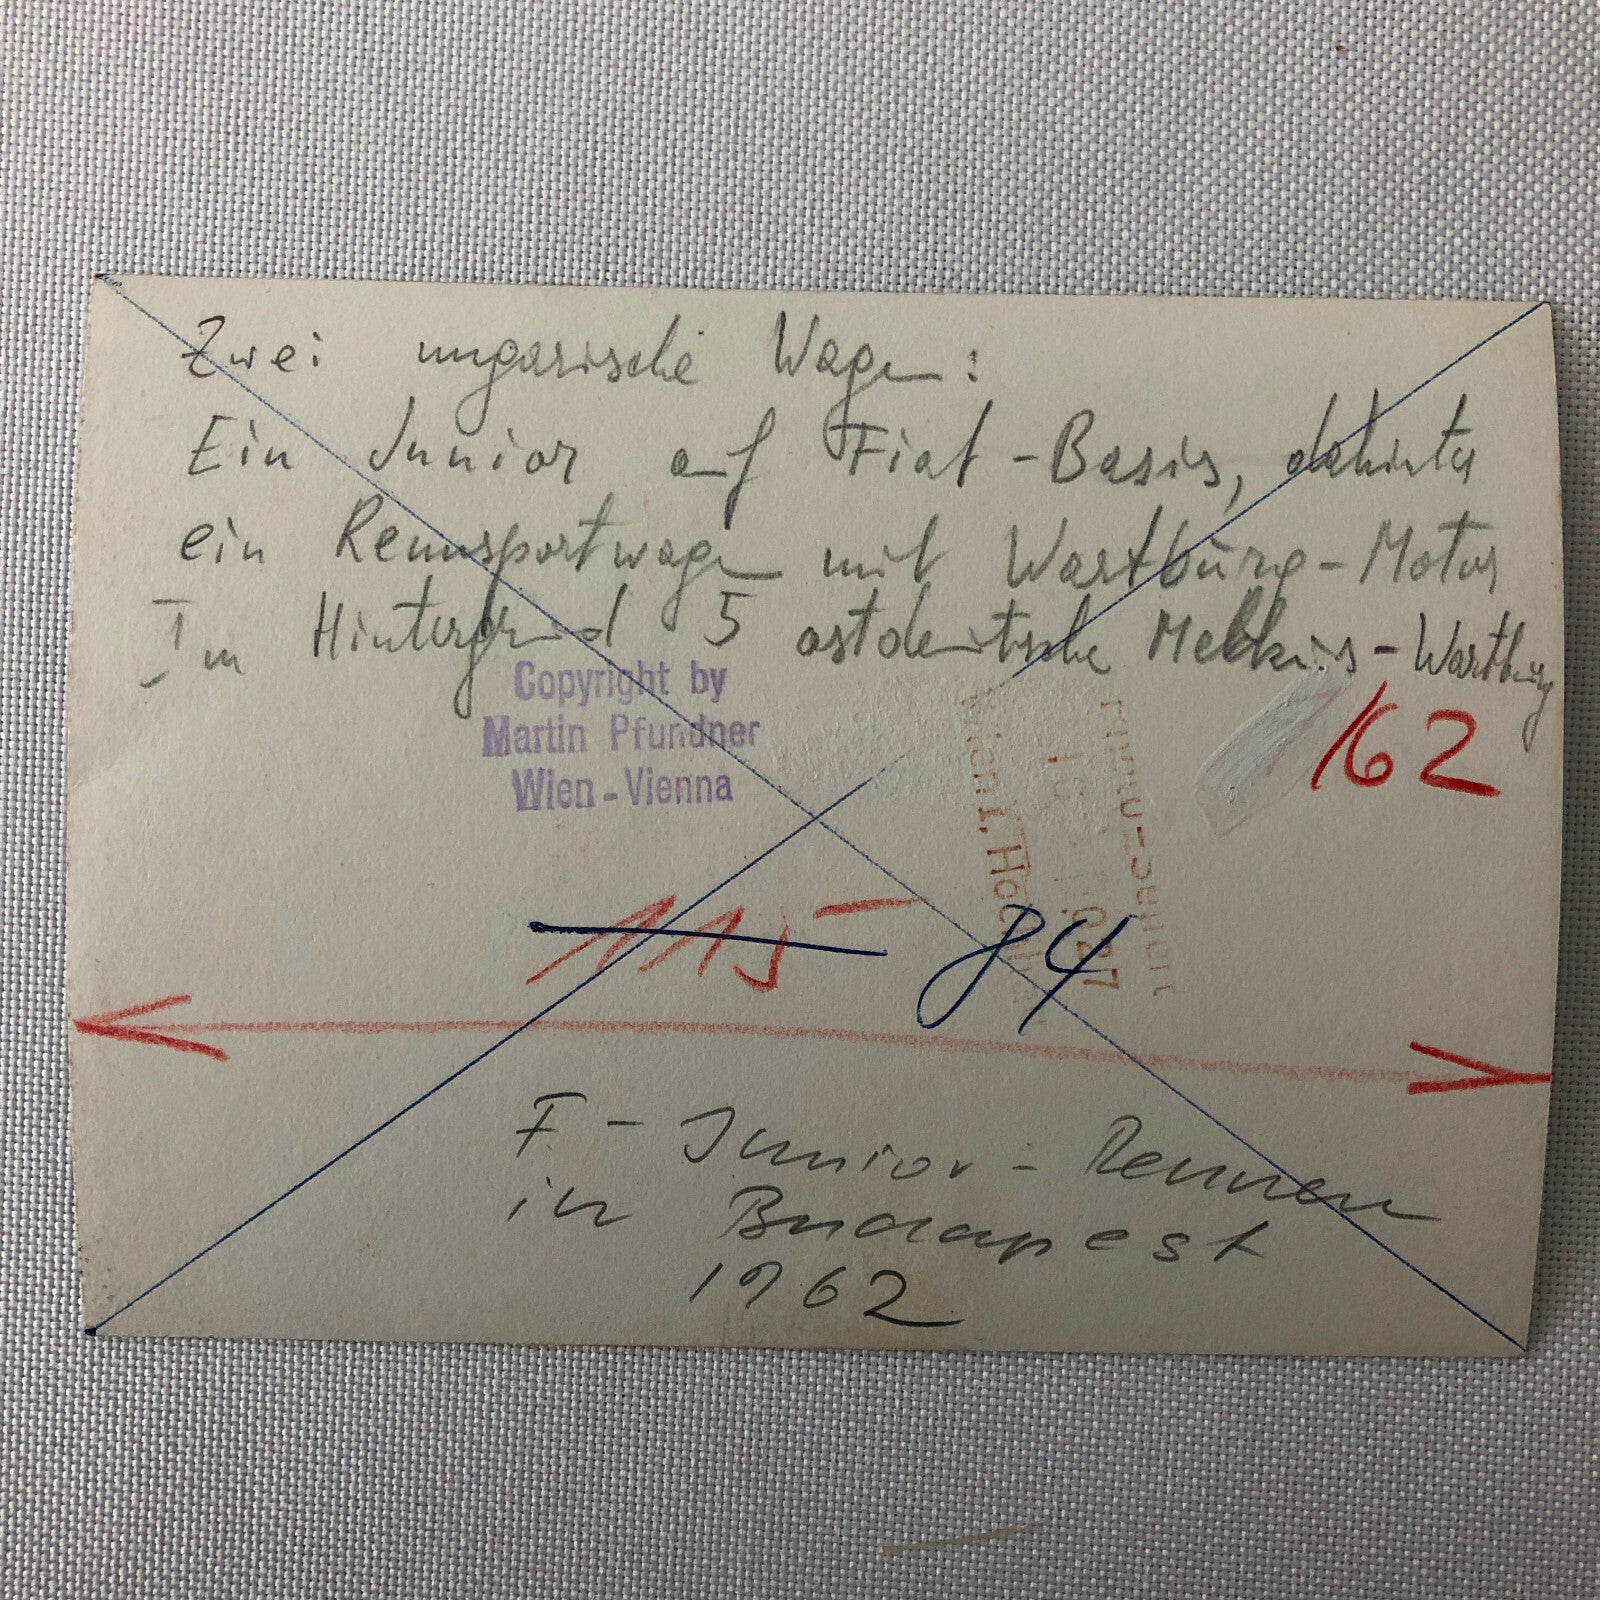 Zwei ungarische Wagen:
Ein Junior auf Fiat-Basis, dahinter
ein Rennsportwagen mit Wartburg-Motor
Im Hintergrund 5 ostdeutsche Melkus-Wartburg
Copyright by
Martin Pfundner
Wien-Vienna
162
115
84
F-Junior-Rennen
in Budapest
1962